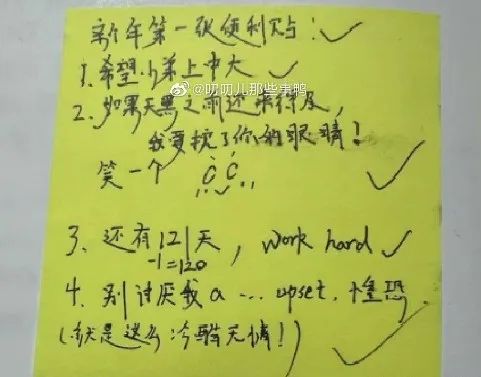 新年第一张便利贴:✓
1.希望小弟上中大 ✓
@叨叨儿那些事鸭
2.如果天黑之前还来得及,
我要挖了你的眼睛!
笑一个 ✓
3、还有121天, work hard ✓
-1=120
4、别讨厌我a … upset. 惶恐
(就是这么冷酷无情!) ✓